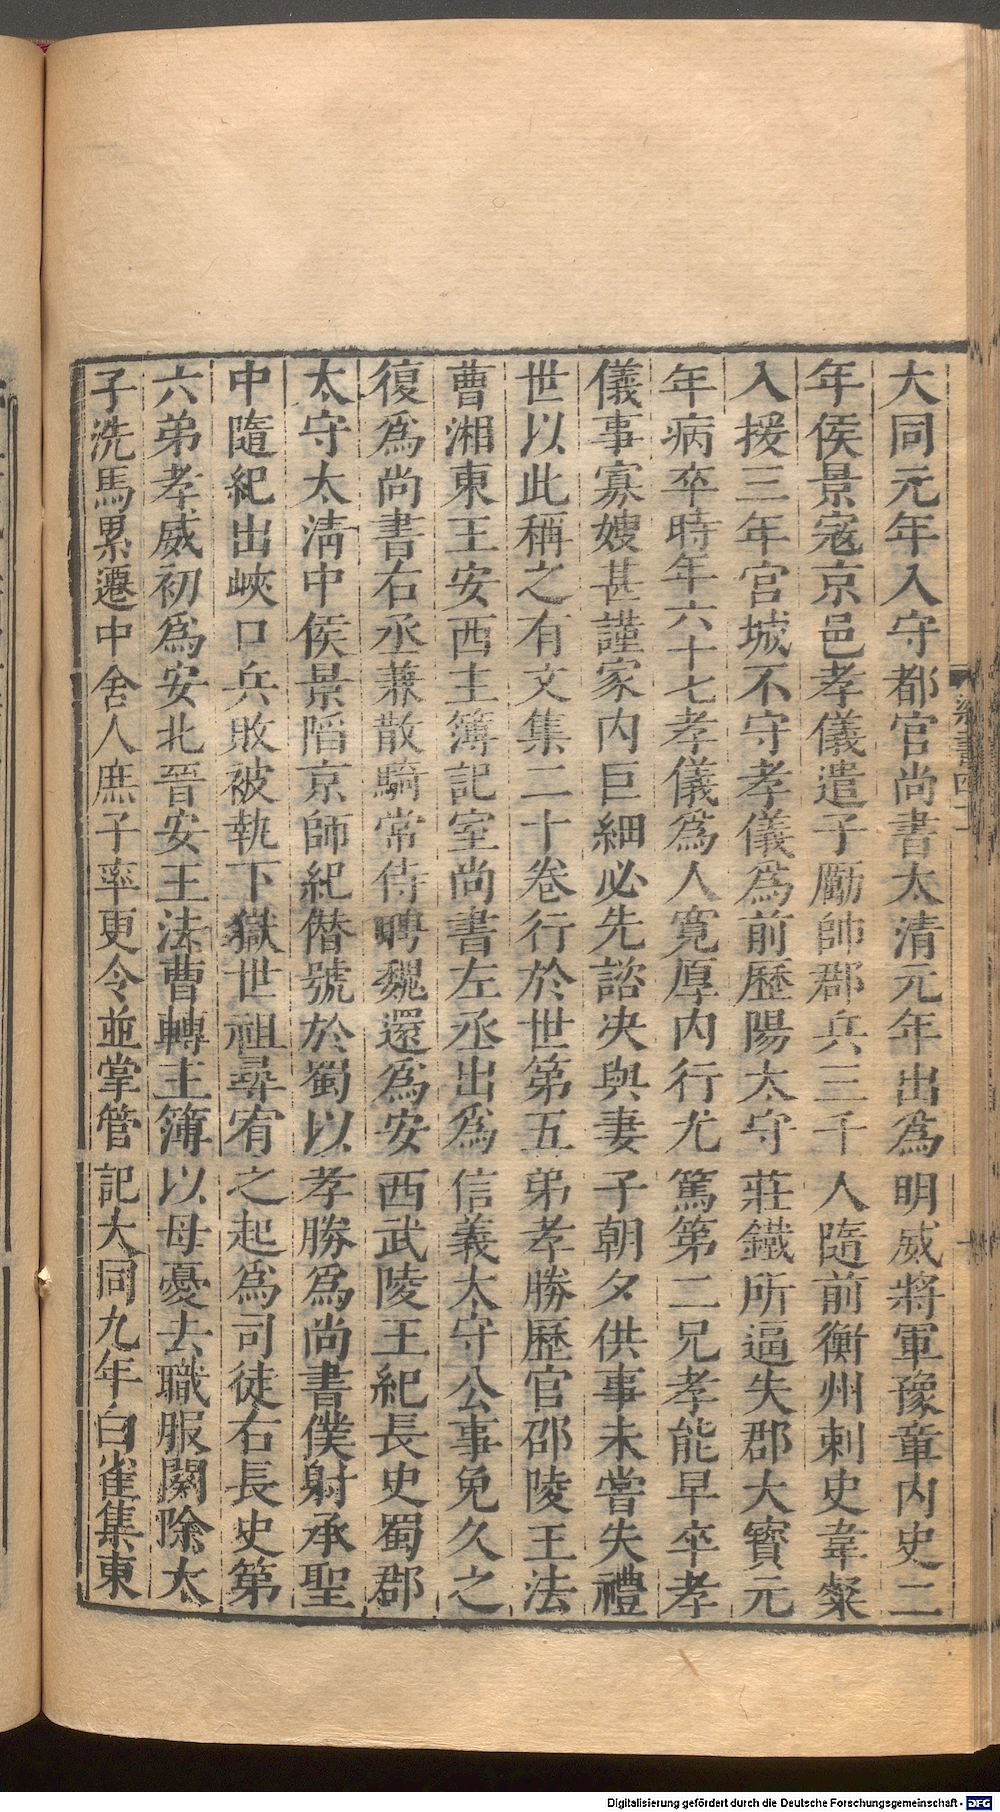 大同元年入守都官尚書太清元年出爲明威將軍豫章内史二
年侯景寇京邑孝儀遣子勵帥郡兵三千人隨前衡州刺史韋粲
入援三年宮城不守孝儀爲前歷陽太守莊鐵所逼失郡大寶元
年病卒時年六十七孝儀爲人寬厚内行尤篤第二兄孝能早卒孝
儀事寡嫂甚謹家内巨細必先諮决與妻子朝夕供事未嘗失禮
世以此稱之有文集二十卷行於世第五弟孝勝歷官邵陵王法
曹湘東王安西主簿記室尚書左丞出爲信義太守公事免久之
復爲尚書右丞兼散騎常侍聘魏還爲安西武陵王紀長史蜀郡
太守太淸中侯景陷京師紀僭號於蜀以孝勝爲尚書僕射承聖
中隨紀出峽口兵敗被執下獄世祖尋宥之起爲司徒右長史第
六弟孝威初爲安北晉安王法曹轉主簿以母憂去職服闋除太
子洗馬累遷中舍人庶子率更令並掌管記大同九年白雀集東
Digitalisierung gefördert durch die Deutsche Forschungsgemeinschaft - DFG